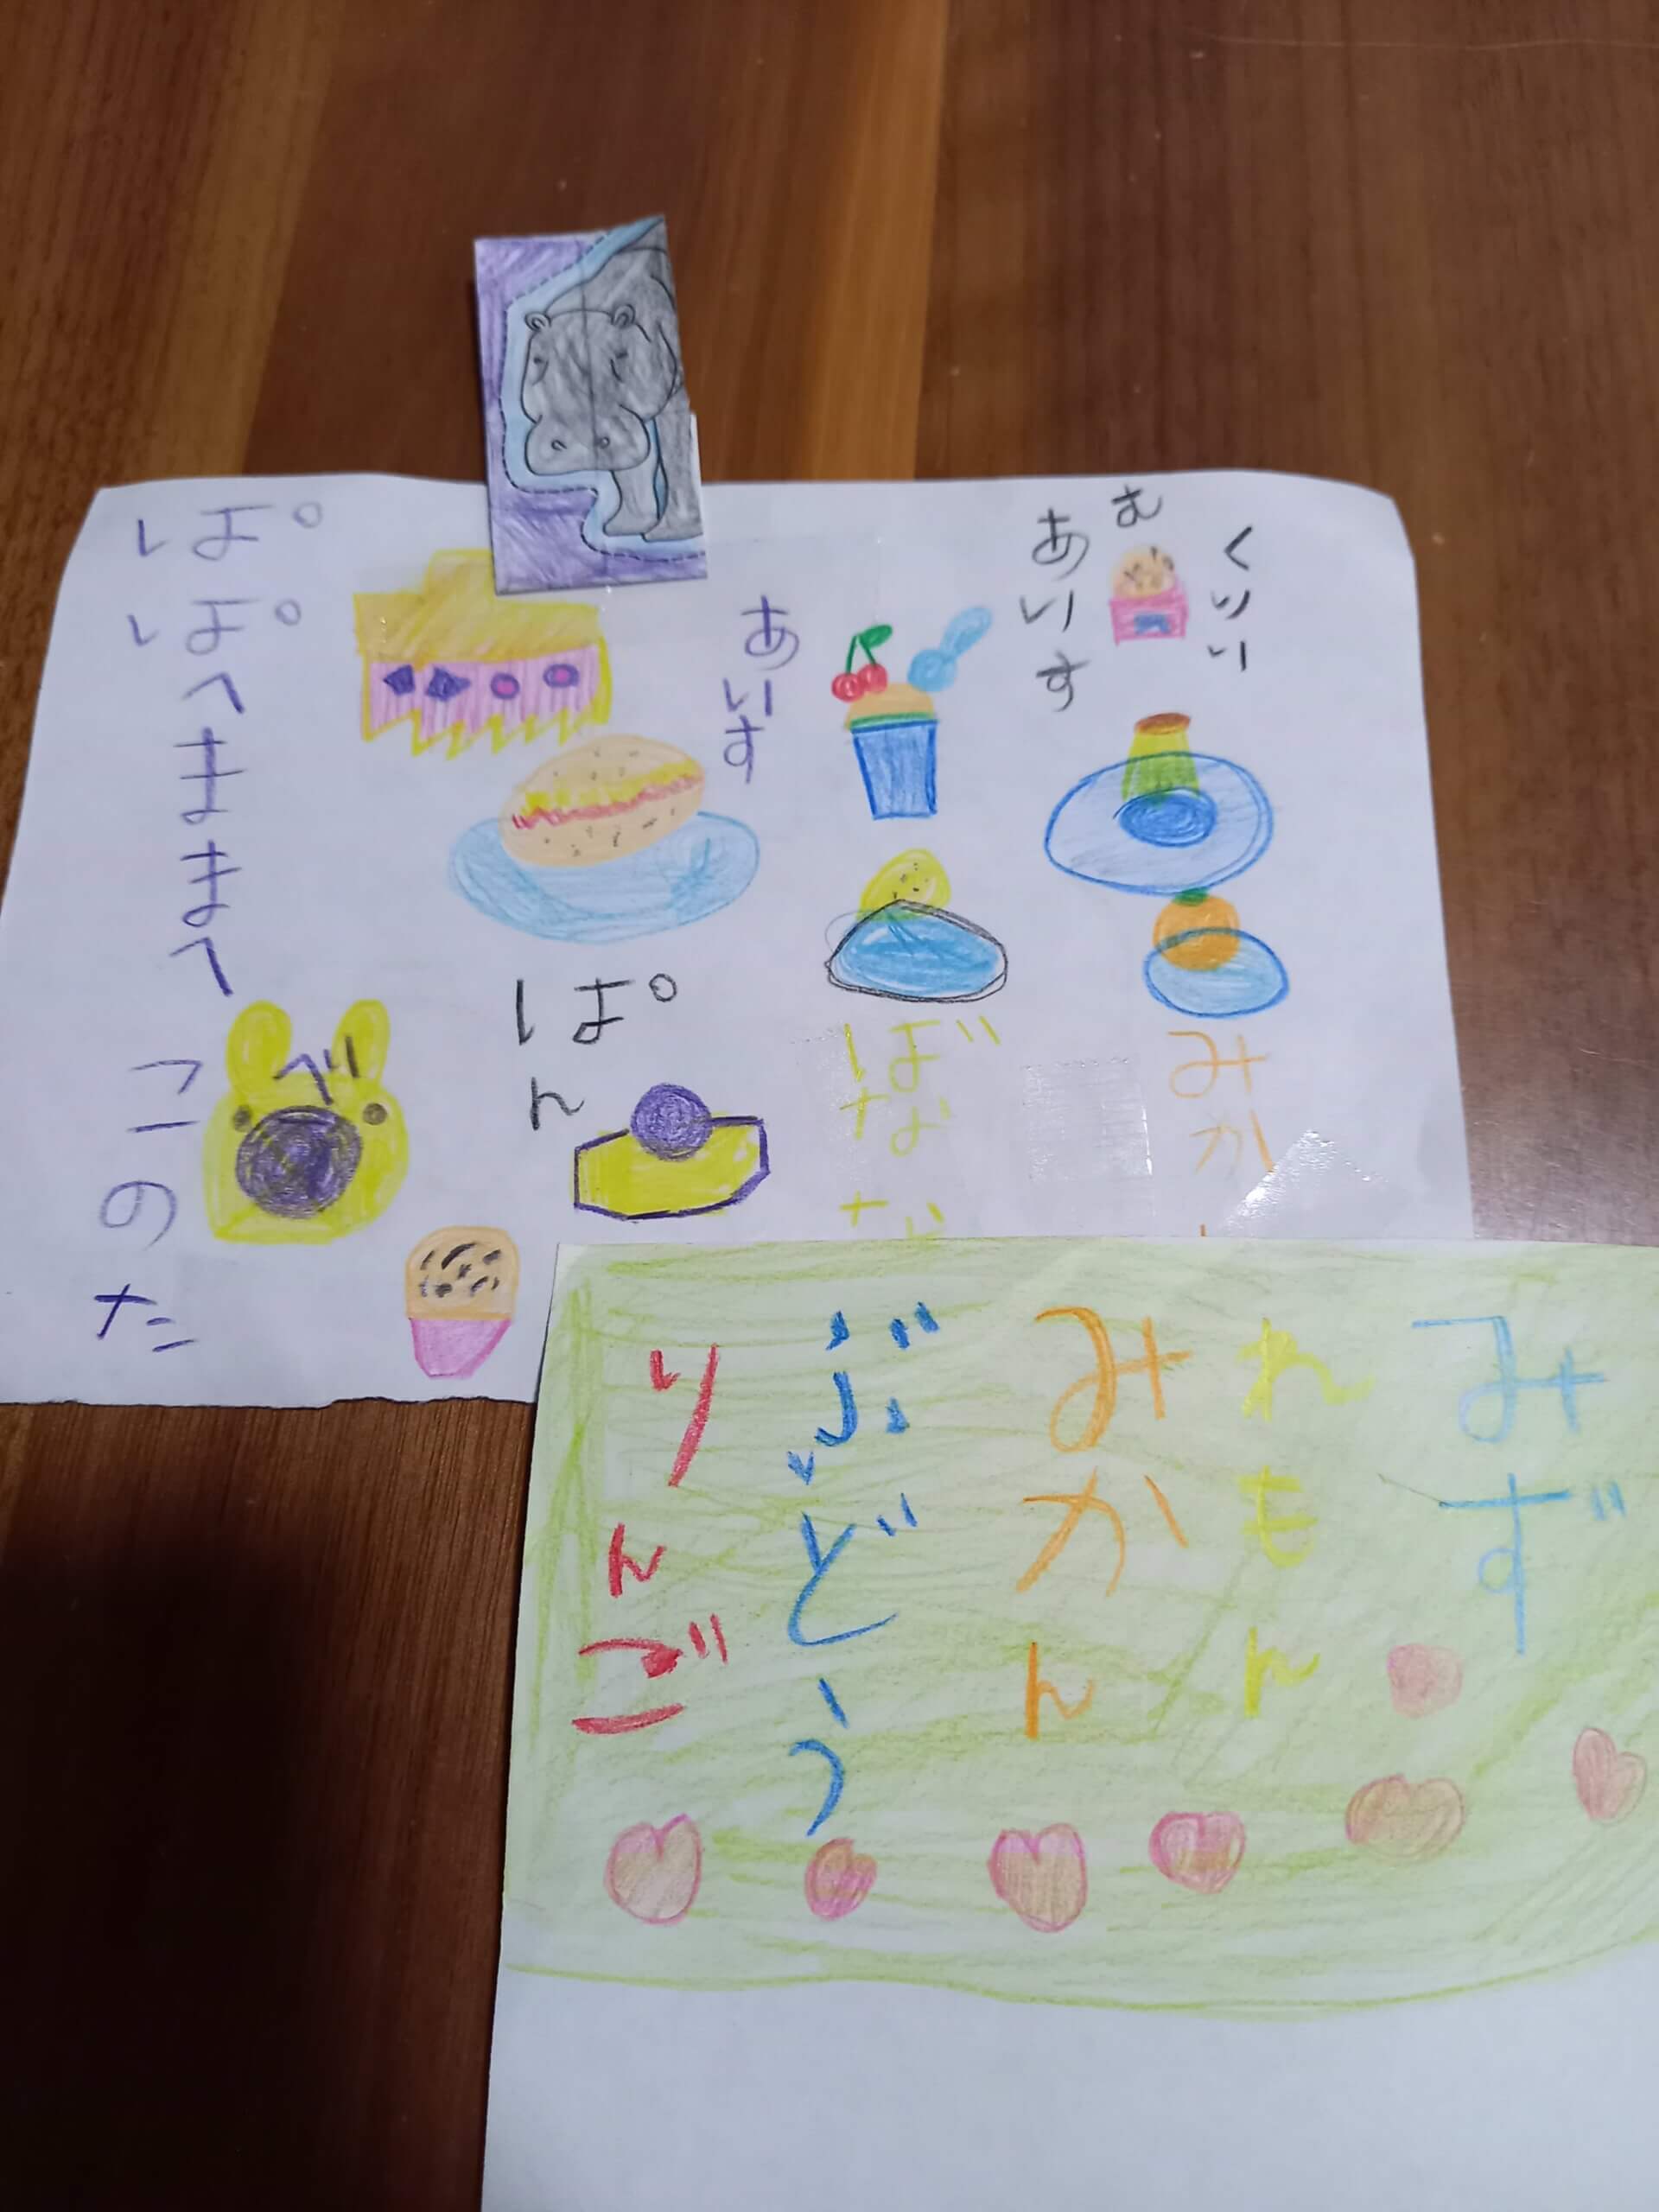 くりい
む
あいす
あいす
みか
ばなな
ぱん
ぱぱへままへ
このた
べ
みず
れもん
みかん
ぶどう
りんご